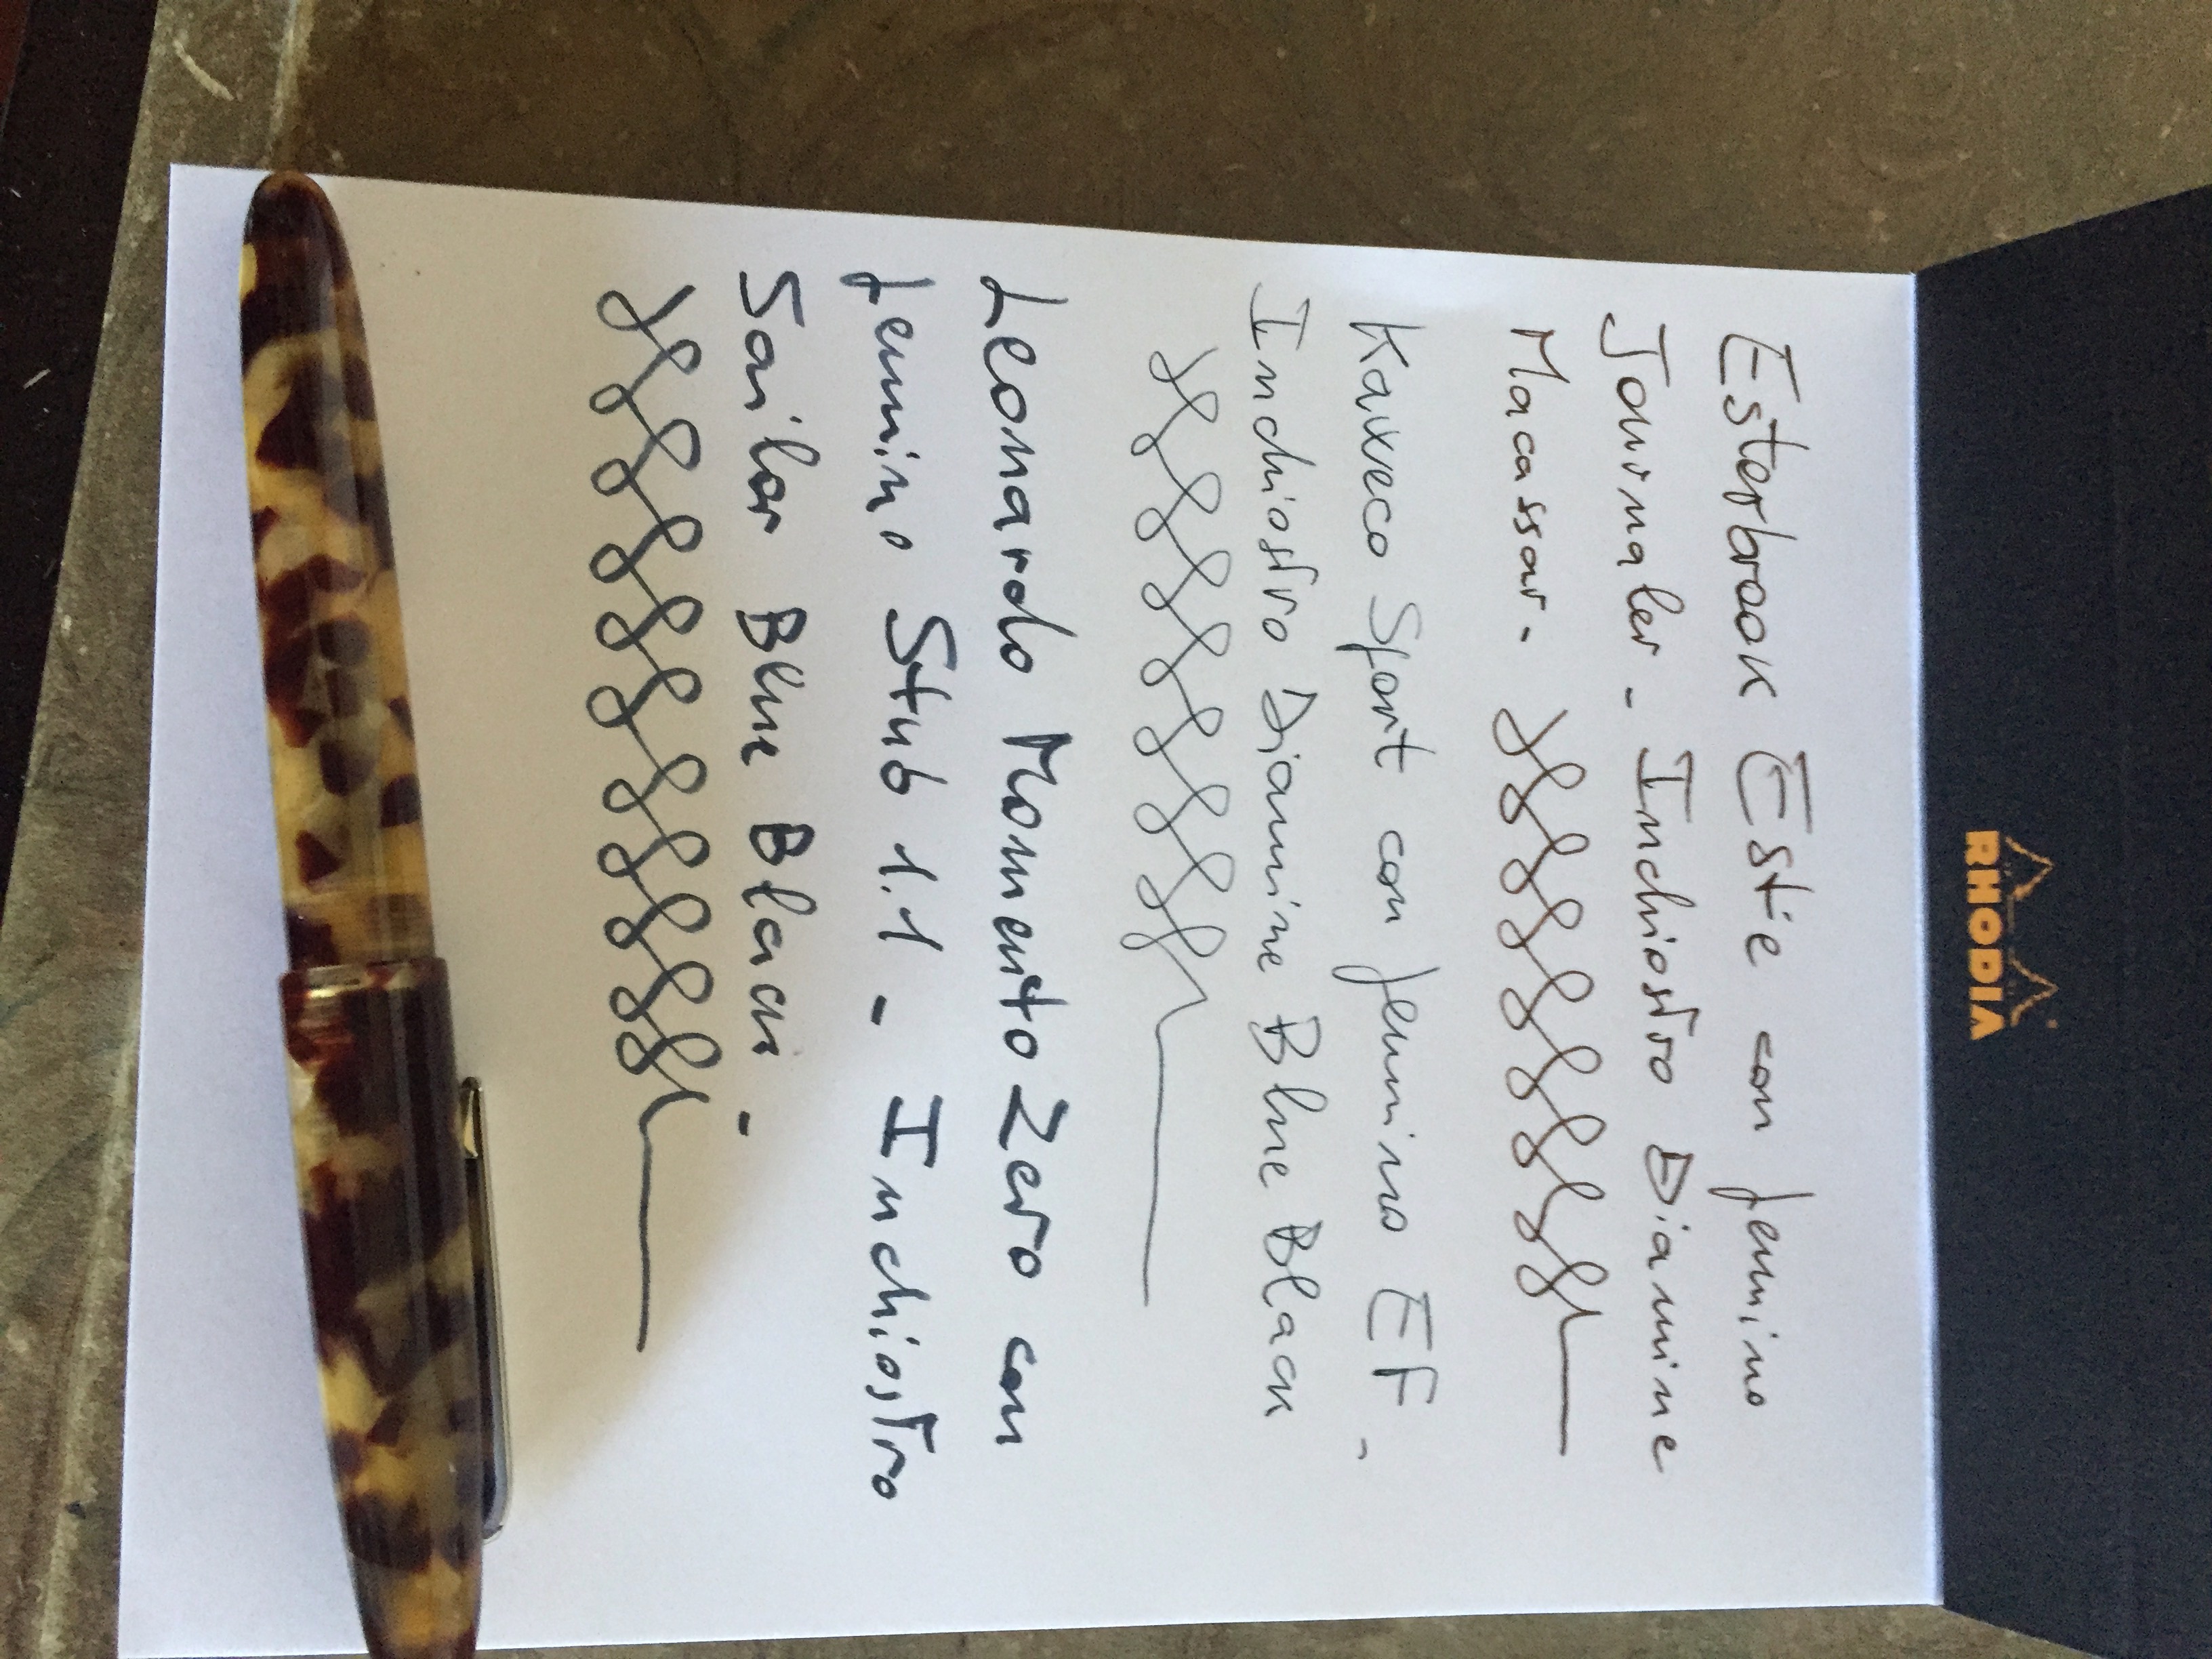 RHODIA
Esterbrook Estie con pennino
Journaler - Inchiostro Diamine
Macassar -
Kaweco Sport con pennino EF -
Inchiostro Diamine Blue Black
Leonardo Momento Zero con
pennino Stub 1.1 - Inchiostro
Sailor Blue Black -